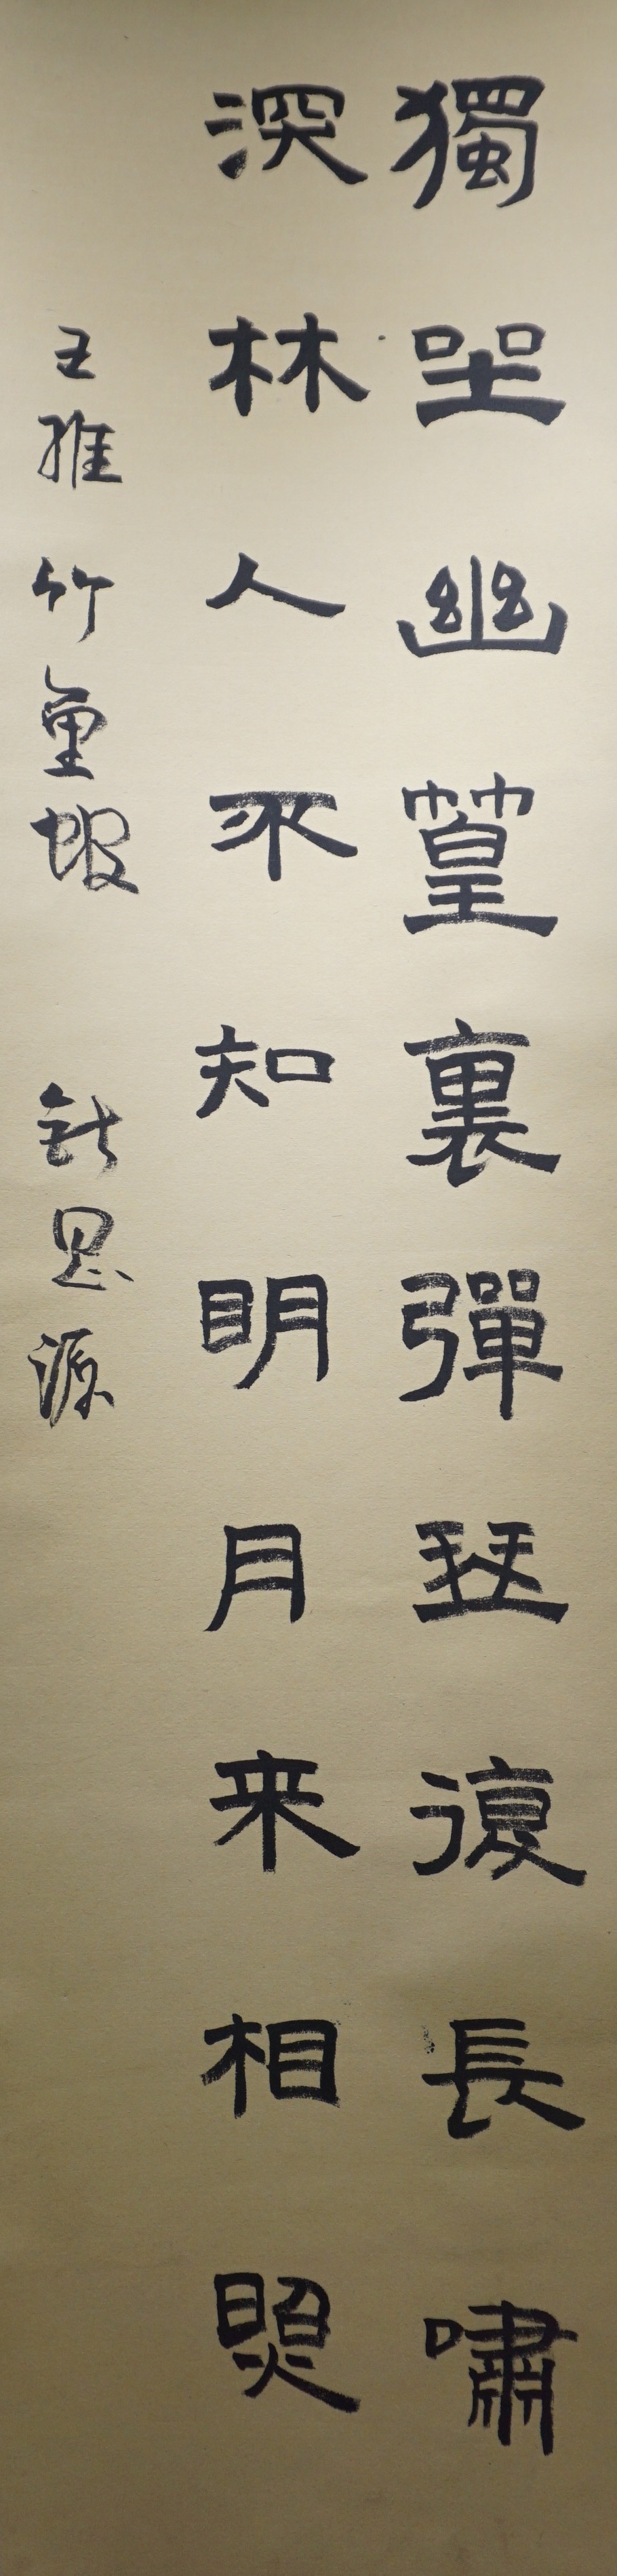 獨坐幽篁裏彈琴復長嘯
深林人不知明月来相照
王維 竹 思源